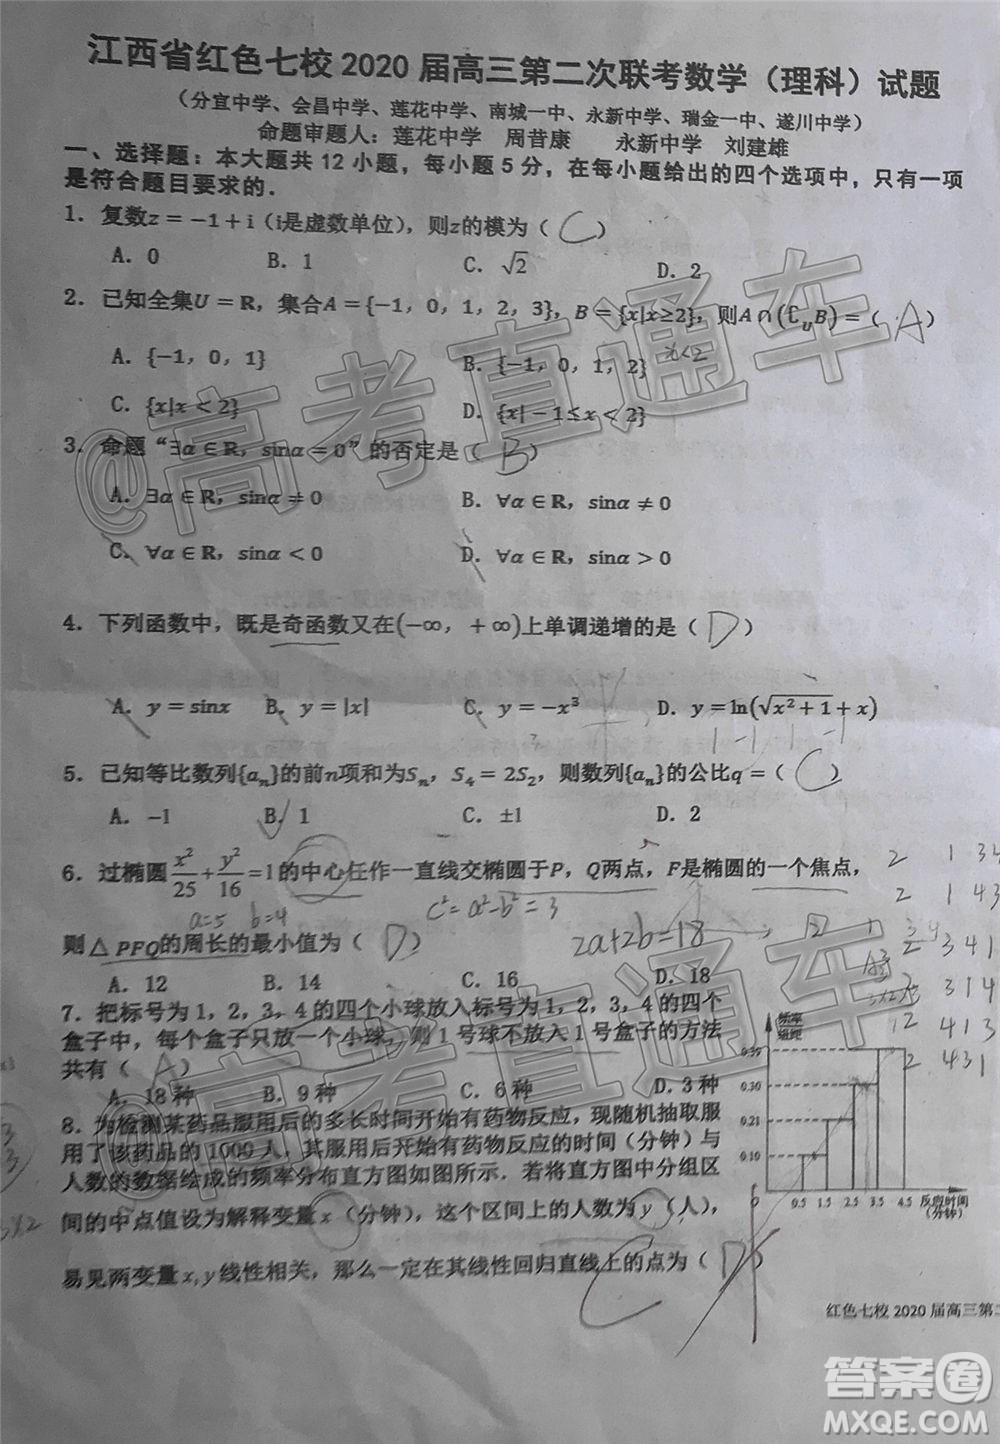 江西省红色七校2020届高三第二次联考数学（理科）试题
（分宜中学、会昌中学、莲花中学、南城一中、永新中学、瑞金一中、遂川中学）
命题审题人：莲花中学 周昔康 永新中学 刘建雄
一、选择题：本大题共12小题，每小题5分，在每小题给出的四个选项中，只有一项
是符合题目要求的．
1．复数z=−1+i（i是虚数单位），则z的模为（ C ）
A．0 B．1 C．√2 D．2
2．已知全集U=R，集合A={−1，0，1，2，3}，B={x|x≥2}，则A∩(∁UB)=（ A ）
x<2
A．{−1，0，1} B．{−1，0，1，2}
C．{x|x<2} D．{x|−1≤x<2}
3．命题“∃α∈R，sinα=0”的否定是（ B ）
A．∃α∈R，sinα≠0 B．∀α∈R，sinα≠0
C．∀α∈R，sinα<0 D．∀α∈R，sinα>0
4．下列函数中，既是奇函数又在(−∞，+∞)上单调递增的是（ D ）
A．y=sinx B．y=|x| C．y=−x³ D．y=ln(√(x²+1)+x)
5．已知等比数列{aₙ}的前n项和为Sₙ，S₄=2S₂，则数列{aₙ}的公比q=（ C ）
A．−1 B．1 C．±1 D．2
6．过椭圆x²/25+y²/16=1的中心任作一直线交椭圆于P，Q两点，F是椭圆的一个焦点，
a=5 b=4 c²=a²-b²=3
则△PFQ的周长的最小值为（ D ） 2a+2b=18
A．12 B．14 C．16 D．18
7．把标号为1，2，3，4的四个小球放入标号为1，2，3，4的四个
盒子中，每个盒子只放一个小球，则1号球不放入1号盒子的方法
共有（ A ）
A．18种 B．9种 C．6种 D．3种
8．为检测某药品服用后的多长时间开始有药物反应，现随机抽取服
用了该药品的1000人，其服用后开始有药物反应的时间（分钟）与
人数的数据绘成的频率分布直方图如图所示．若将直方图中分组区
间的中点值设为解释变量x（分钟），这个区间上的人数为y（人），
易见两变量x,y线性相关，那么一定在其线性回归直线上的点为（ D ）
C
2 1 34
2 1 43
2 341
2 314
2 413
2 431
频率
组距
0.30
0.21
0.10
0 0.5 1.5 2.5 3.5 4.5 反应时间
（分钟）
3×2
红色七校2020届高三第二
@高考直通车
@高考直通车
答案圈
MXQE.COM